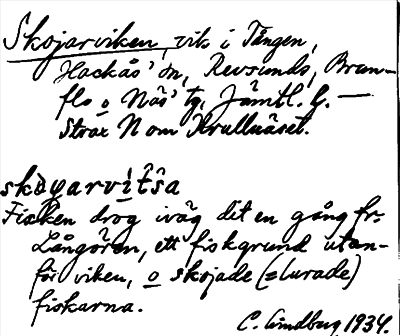 Skojarviken, vik i Tången,
Hackås' sn, Revsunds, Brun-
flo o Näs' tg, Jämtl. l. —
Strax N om Krullnäset.
skò̀yarvìt̂ŝa
Fisken drog iväg dit en gång fr.
Långören, ett fiskgrund utan-
för viken, o skojade (=lurade)
fiskarna.
C. Lindberg 1934.